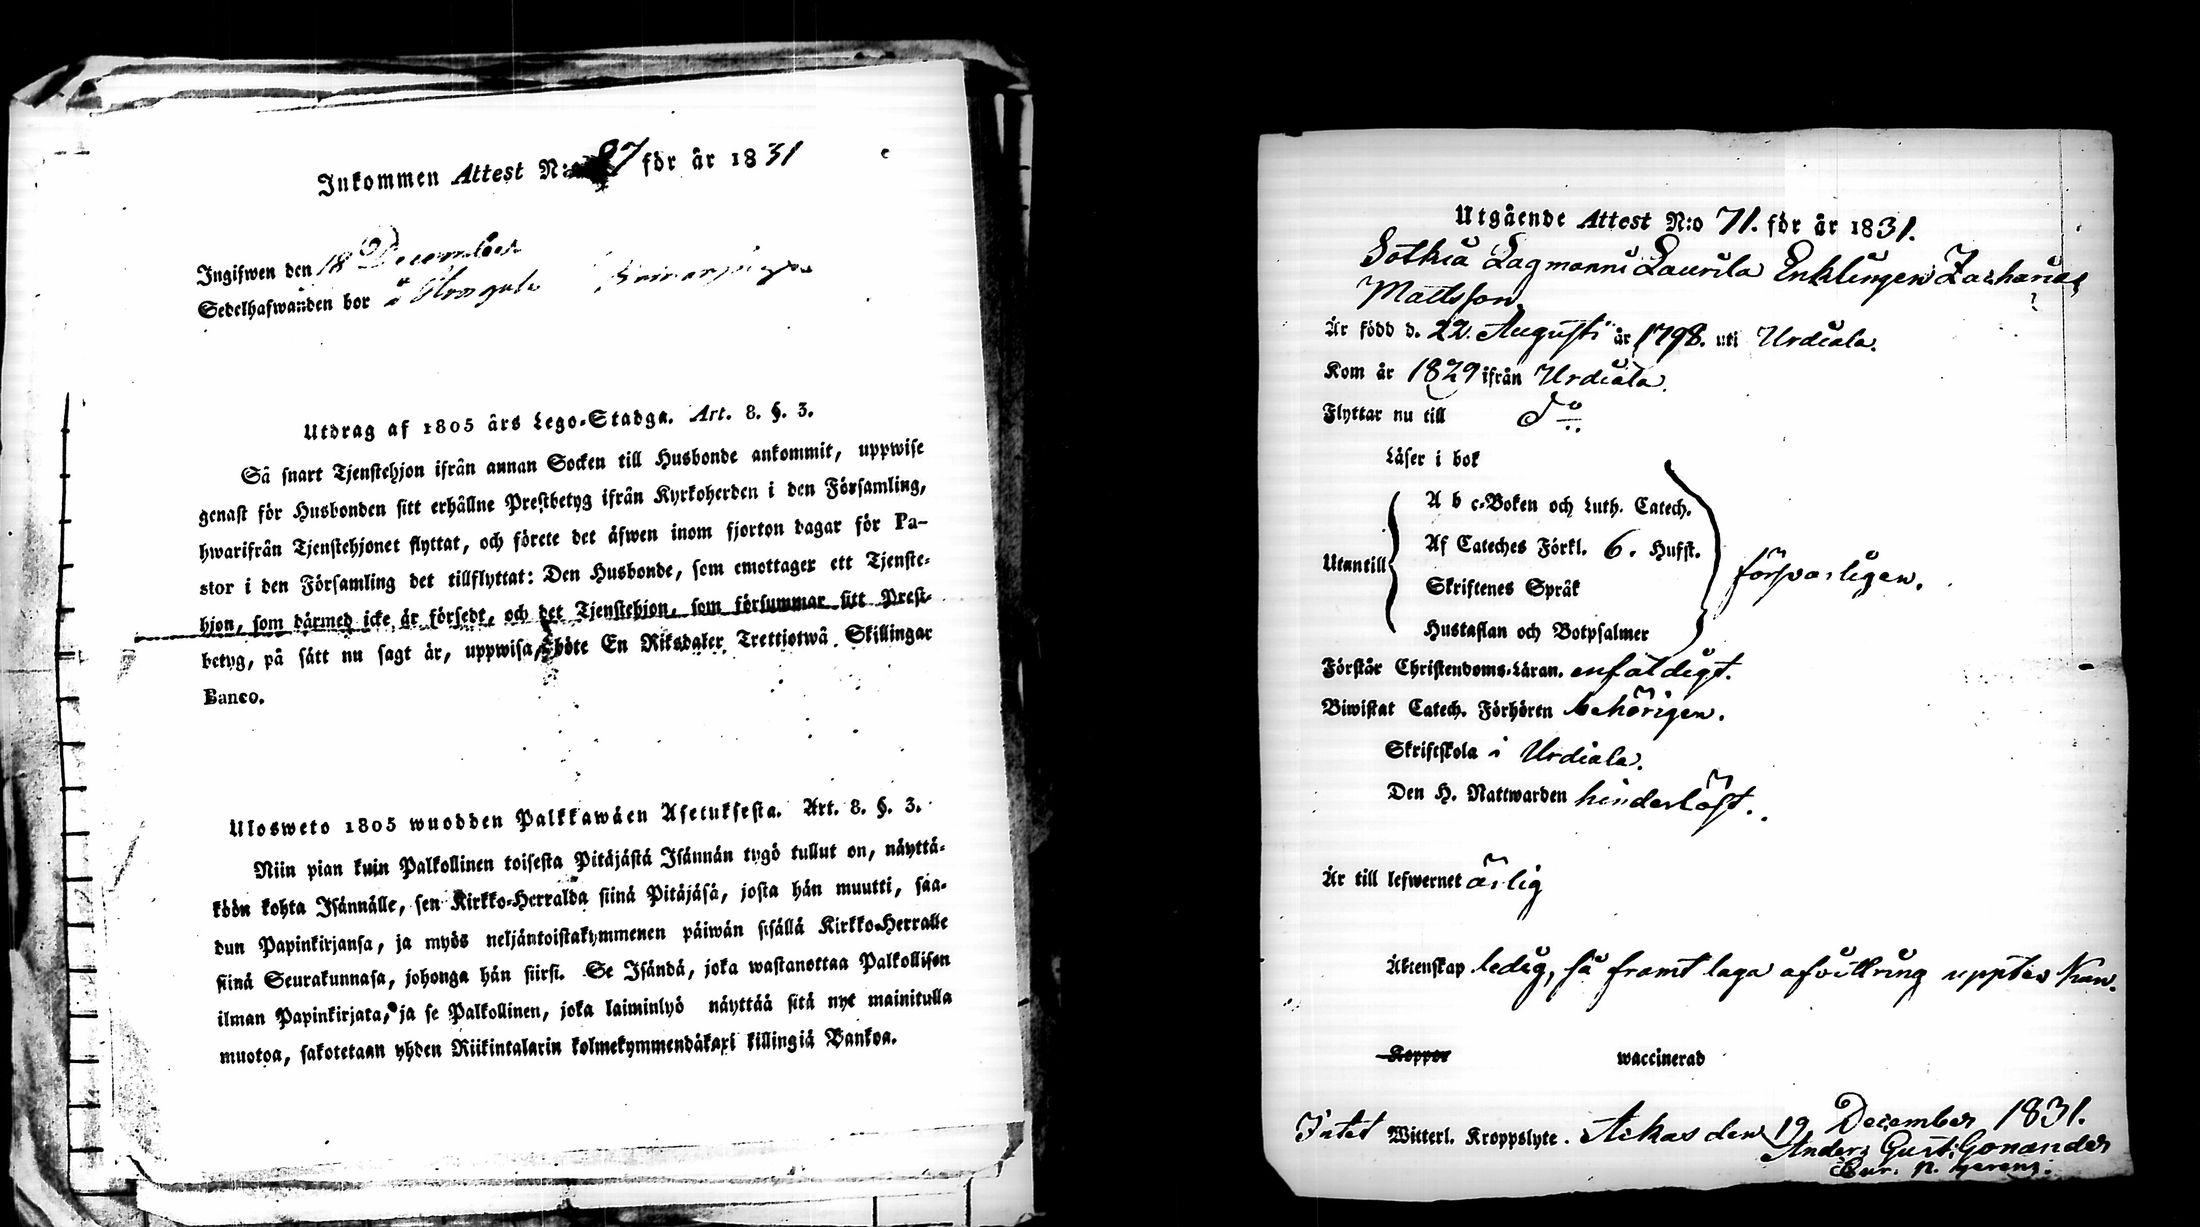 Inkommen Attest N:o 87 för år 1831
Ingifwen den 18 December
Sedelhafwanden bor i
Utdrag af 1805 års Lego-Stadga. Art. 8. §. 3.
Så snart Tjenstehjon ifrån annan Socken till Husbonde ankommit, uppwise
genast för Husbonden sitt erhållne Prestbetyg ifrån Kyrkoherden i den Församling,
hwarifrån Tjenstehjonet flyttat, och förete det äfwen inom fjorton dagar för Pa-
stor i den Församling det tillflyttat: Den Husbonde, som emottager ett Tjenste-
hjon, som därmed icke är försedt, och det Tjenstehjon, som försummar sitt Prest-
betyg, på sätt nu sagt är, uppwisa, böte En Riksdaler Trettiotwå Skillingar
Banco.
Ulosweto 1805 wuodden Palkkawäen Asetuksesta. Art. 8. §. 3.
Niin pian kuin Palkollinen toisesta Pitäjästä Isännän tygö tullut on, näyttä-
köön kohta Isännälle, sen Kirkko-Herralda siinä Pitäjäsä, josta hän muutti, saa-
dun Papinkirjansa, ja myös neljäntoistakymmenen päiwän sisällä Kirkko-Herralle
siinä Seurakunnasa, johonga hän siirsi. Se Isändä, joka wastanottaa Palkollisen
ilman Papinkirjata, ja se Palkollinen, joka laiminlyö näyttää sitä nyt mainitulla
muotoa, sakotetaan yhden Riikintalarin kolmekymmendäkaxi killingiä Bankoa.
Utgående Attest N:o 71. för år 1831.
Sothia Lagmanni Laurila Enklingen Zacharias
Mattsson
Är född d. 22. Augusti år 1798. uti Urdiala.
Kom år 1829 ifrån Urdiala.
Flyttar nu till Do
Läser i bok
A b c-Boken och Luth. Catech.
Af Cateches Förkl. 6. Hufst.
Utantill försvarligen.
Skriftenes Språk
Hustaflan och Botpsalmer
Förstår Christendoms-Läran. enfäldigt.
Biwistat Catech. Förhören behörigen.
Skriftskola i Urdiala.
Den H. Nattwarden hinderlöst.
Är till lefwernet ärlig
Äktenskap ledig, så framt laga afvittring upptes kan.
Koppor waccinerad
Intet Witterl. Kroppslyte. Ackas den 19 December 1831.
Anders Gust: Gonander